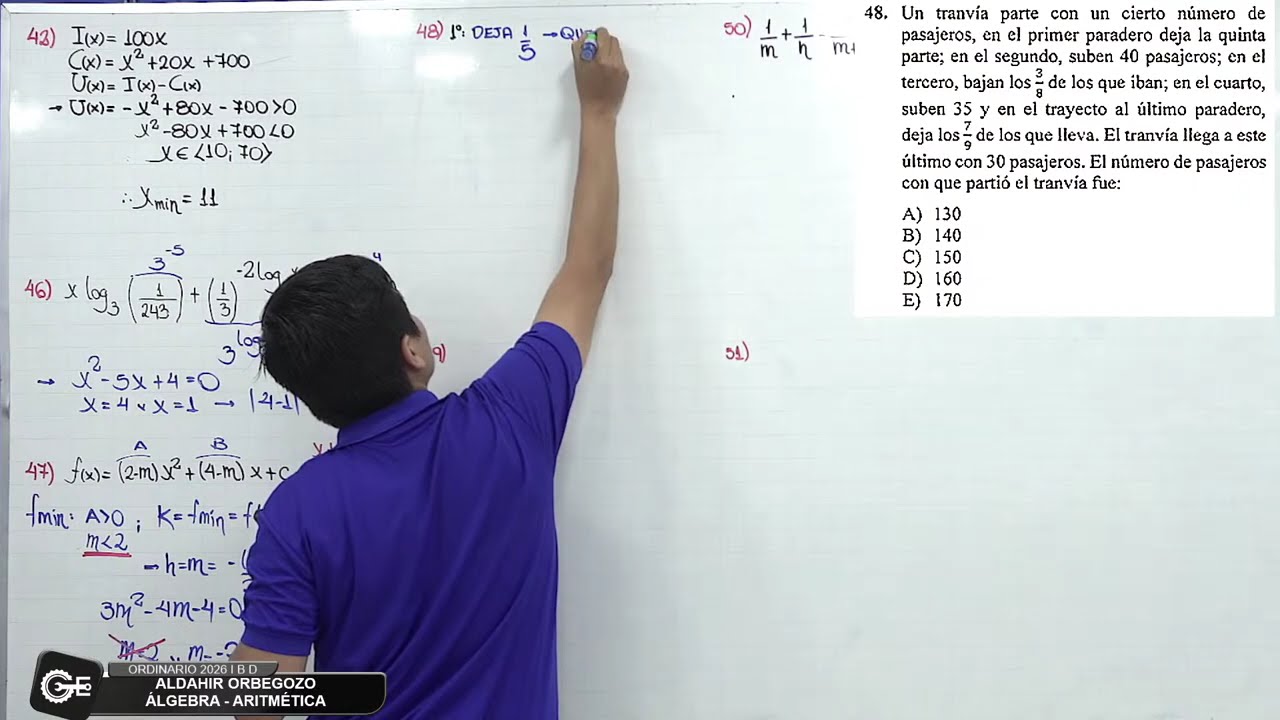 43) I(x) = 100x
C(x) = x² + 20x + 700
U(x) = I(x) - C(x)
→ U(x) = -x² + 80x - 700 > 0
x² - 80x + 700 < 0
x ∈ ⟨10; 70⟩
∴ x min = 11
3⁻⁵
46) x log₃ (1/243) + (1/3)^-2log
4
3^log
→ x² - 5x + 4 = 0
x = 4 ∨ x = 1 → |4-1|
A B
47) f(x) = (2-m)x² + (4-m)x + c
fmín: A>0 ; K = fmín = f
m<2
→ h = m = -
3m² - 4m - 4 = 0
m=2
48) 1°: DEJA 1/5 → QU
9)
50) 1/m + 1/n - m+
51)
48. Un tranvía parte con un cierto número de
pasajeros, en el primer paradero deja la quinta
parte; en el segundo, suben 40 pasajeros; en el
tercero, bajan los 3/8 de los que iban; en el cuarto,
suben 35 y en el trayecto al último paradero,
deja los 7/9 de los que lleva. El tranvía llega a este
último con 30 pasajeros. El número de pasajeros
con que partió el tranvía fue:
A) 130
B) 140
C) 150
D) 160
E) 170
ORDINARIO 2026 I B D
ALDAHIR ORBEGOZO
ÁLGEBRA - ARITMÉTICA